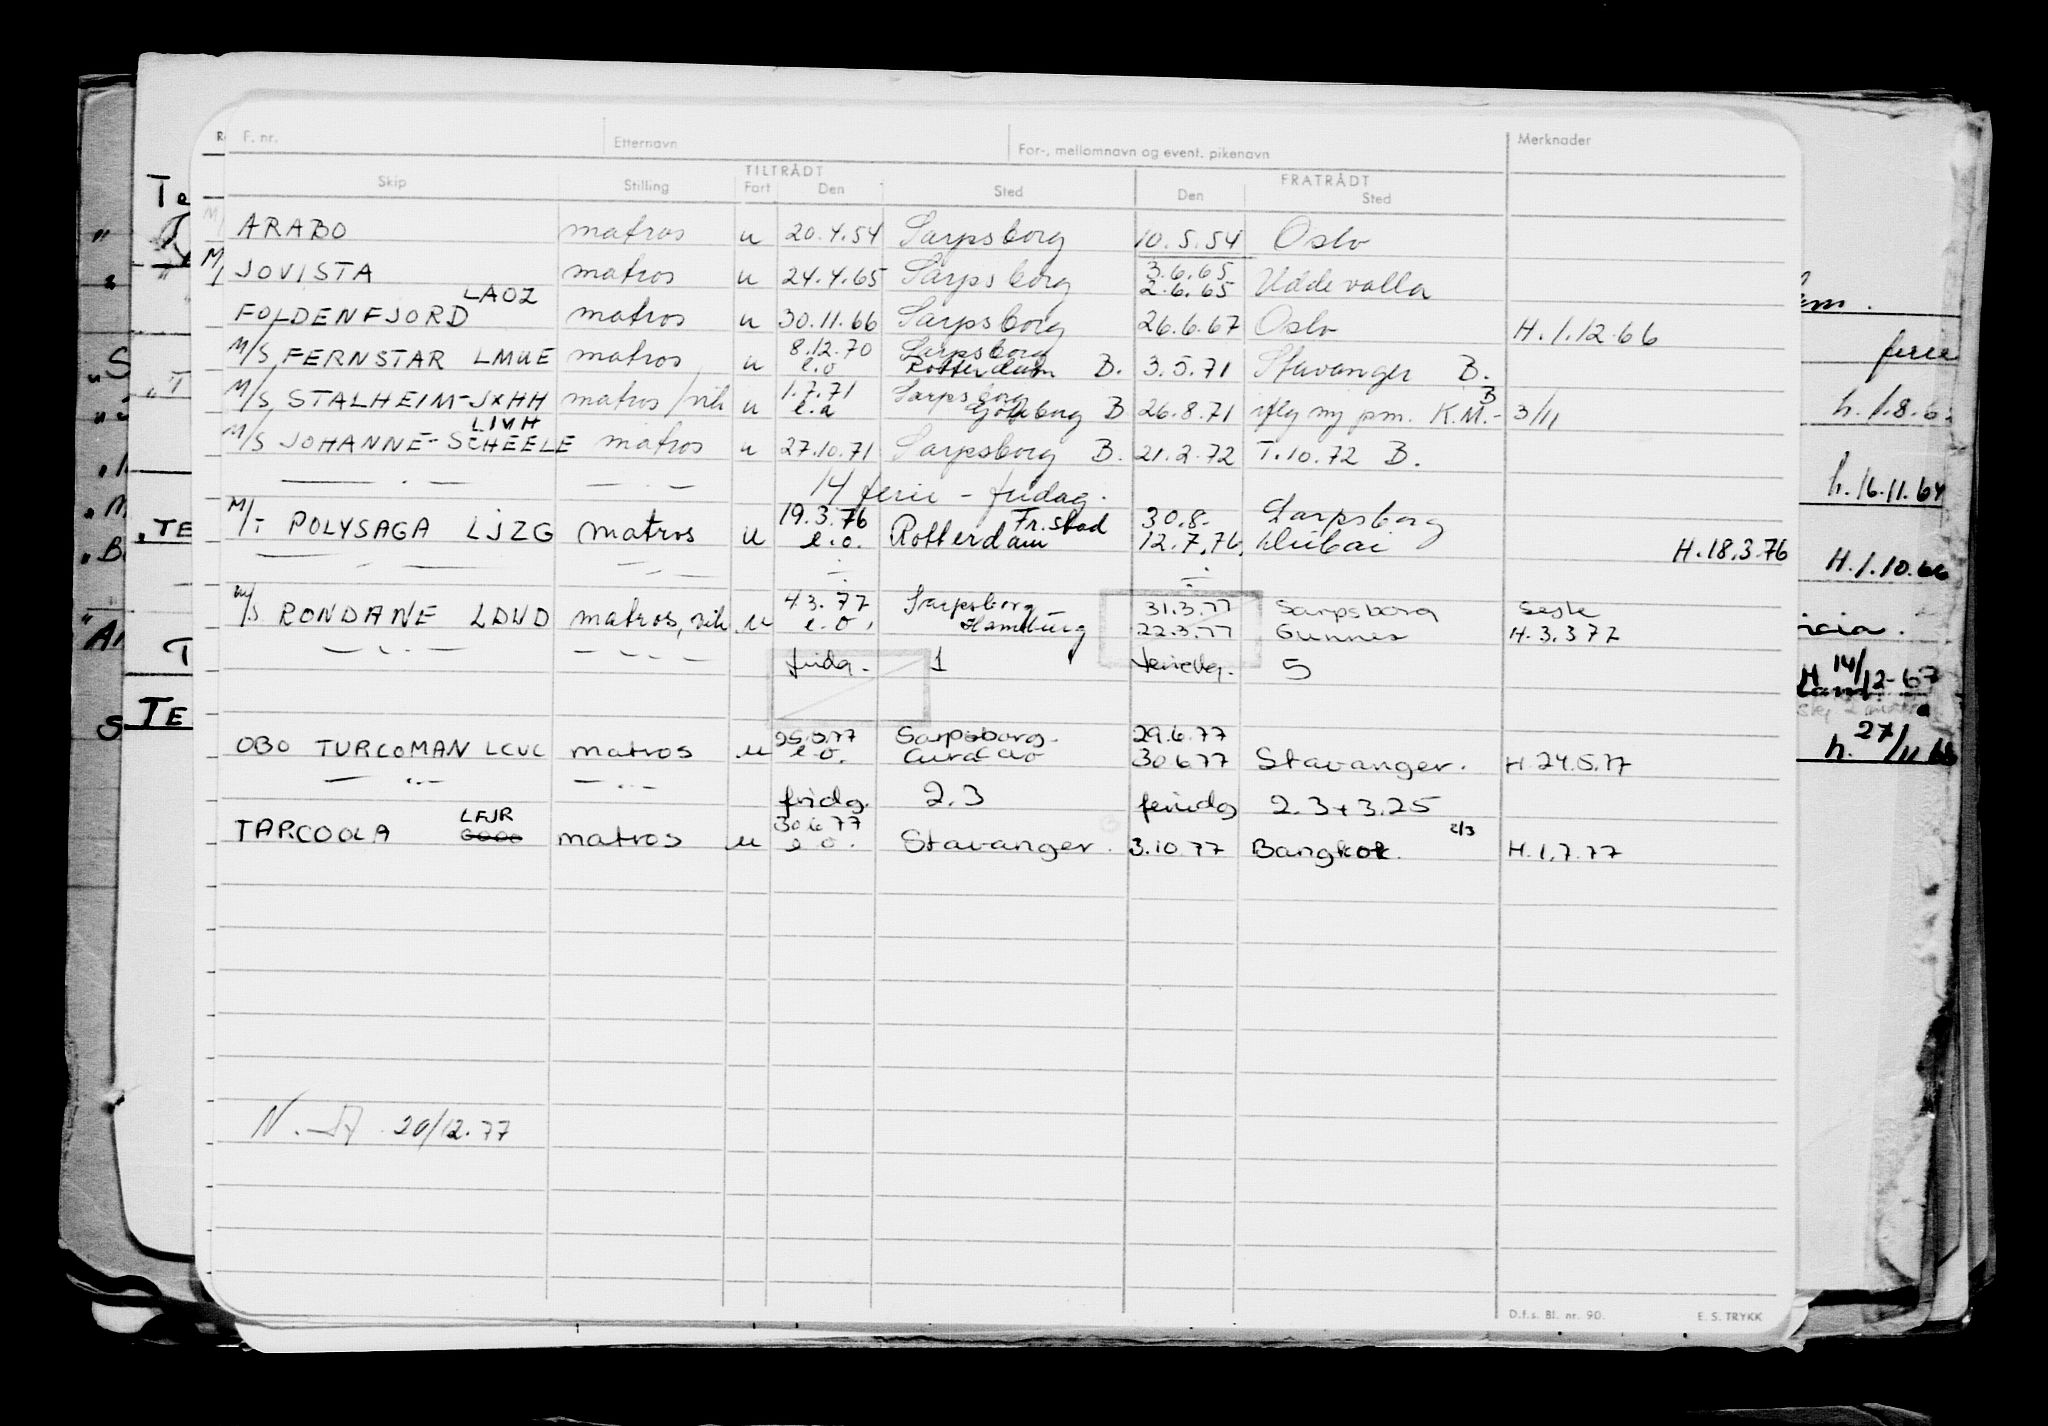 F. nr. Etternavn For-, mellomnavn og event. pikenavn Merknader
TILTRÅDT FRATRÅDT
Skip Stilling Fart Den Sted Den Sted
ARABO matros u 20.4.54 Sarpsborg 10.5.54 Oslo
M/ JOVISTA matros u 24.4.65 Sarpsborg 3.6.65 2.6.65 Uddevalla
LAOZ
FOLDENFJORD matros u 30.11.66 Sarpsborg 26.6.67 Oslo H.1.12.66
8.12.70 Sarpsborg
M/S FERNSTAR LMWE matros u e.o Rotterdam B. 3.5.71 Stavanger B.
1.7.71 Sarpsborg B
M/S STALHEIM-JXHH matros/vik u e.a Göteborg B 26.8.71 iflg ny pm. K.M.- 3/11
LIVH
M/S JOHANNE-SCHEELE matros u 27.10.71 Sarpsborg B. 21.2.72 T.10.72 B.
14 ferie - fridag.
19.3.76 Fr.stad 30.8. Sarpsborg
M/T POLYSAGA LJZG matros u e.o. Rotterdam 12.7.76 Dubai H.18.3.76
4.3.77 Sarpsborg 31.3.77 Sarpsborg
M/S RONDANE LDWD matros, vik u e.o. Hamburg 22.3.77 Gunnes H.3.3 77
fridg. 1 feriedg. 5
25.5.77 Sarpsborg 29.6.77
OBO TURCOMAN LCVC matros u e.o. Curacao 30677 Stavanger. H.24.5.77
fridg. 2.3 feriedg 2.3+3.25
LFJR 30.6.77 2/3
TARCOOLA matros u e.o. Stavanger. 3.10.77 Bangkok. H.1.7.77
20/12.77
D.f.s. Bl. nr. 90. E. S. TRYKK
Te
TE
T
TE
ferie
h.1.8.6
h.16.11.64
H.1.10.66
H 14/12-67
h. 27/11